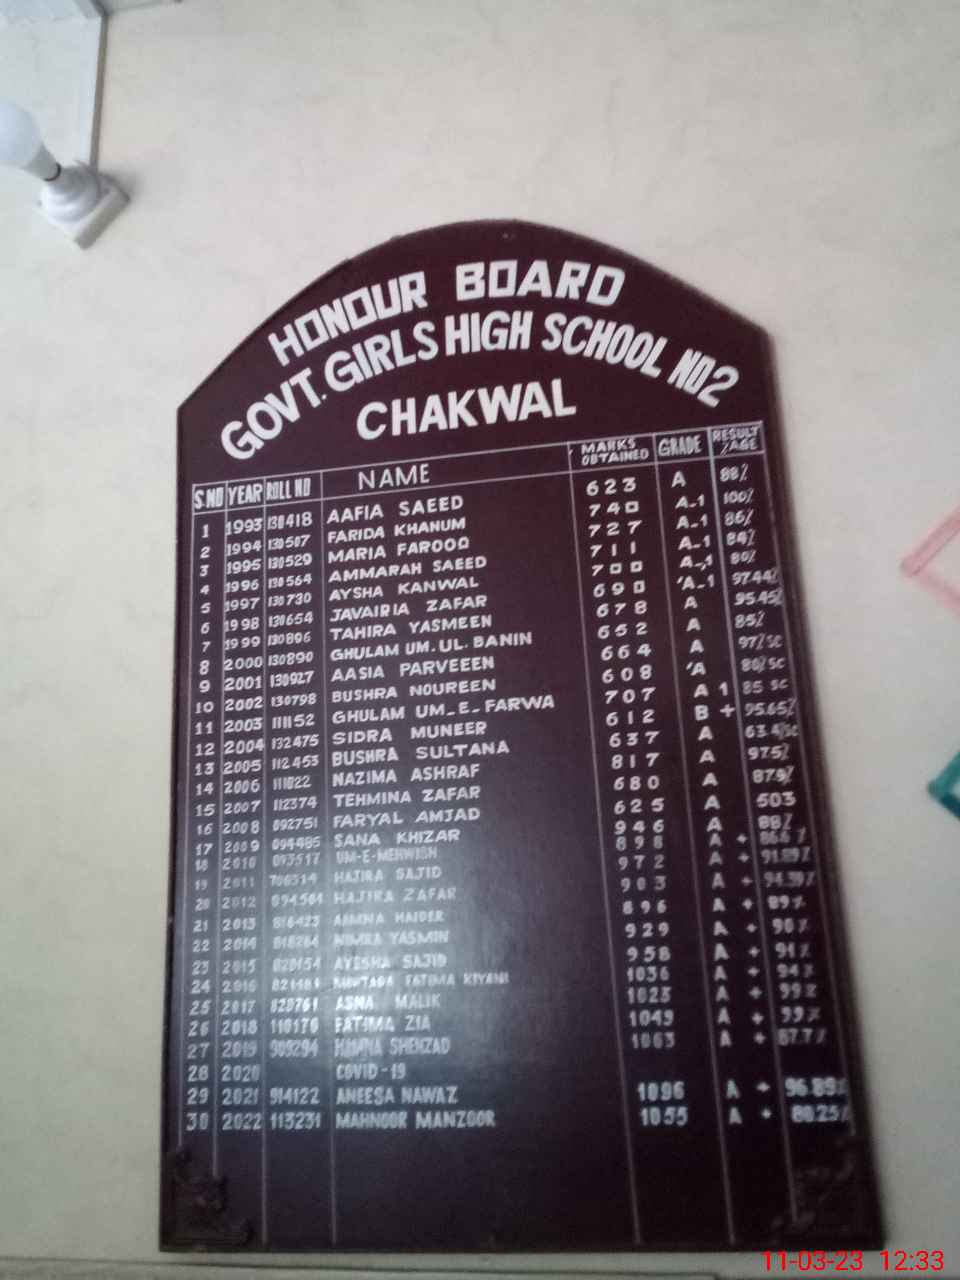 HONOUR BOARD
GOVT. GIRLS HIGH SCHOOL NO2
CHAKWAL
S.NO YEAR ROLL NO NAME MARKS OBTAINED GRADE RESULT %AGE
1 1993 130418 AAFIA SAEED 623 A 88%
2 1994 130507 FARIDA KHANUM 740 A-1 100%
3 1995 130529 MARIA FAROOQ 727 A-1 86%
4 1996 130564 AMMARAH SAEED 711 A-1 84%
5 1997 130730 AYSHA KANWAL 700 A-1 80%
6 1998 130654 JAVAIRIA ZAFAR 690 A-1 97.44%
7 1999 130896 TAHIRA YASMEEN 678 A 95.45%
8 2000 130890 GHULAM UM.UL.BANIN 652 A 85%
9 2001 130927 AASIA PARVEEEN 664 A 97% SC
10 2002 130798 BUSHRA NOUREEN 608 A 80% SC
11 2003 111152 GHULAM UM-E-FARWA 707 A 1 85 SC
12 2004 132475 SIDRA MUNEER 612 B + 95.65%
13 2005 112453 BUSHRA SULTANA 637 A 63.4% SC
14 2006 111022 NAZIMA ASHRAF 817 A 97.5%
15 2007 112374 TEHMINA ZAFAR 680 A 87.9%
16 2008 092751 FARYAL AMJAD 625 A 503
17 2009 094485 SANA KHIZAR 946 A 88%
18 2010 093517 UM-E-MEHWISH 898 A + 86.6%
19 2011 706314 HAJIRA SAJID 972 A + 91.89%
20 2012 094564 HAJIRA ZAFAR 903 A + 94.39%
21 2013 816423 AAMNA HAIDER 896 A + 89%
22 2014 818264 NIMRA YASMIN 929 A + 90%
23 2015 820154 AYESHA SAJID 958 A + 91%
24 2016 FATIMA KIYANI 1036 A + 94%
25 2017 820761 ASMA MALIK 1023 A + 99%
26 2018 110170 FATIMA ZIA 1049 A + 99%
27 2019 909294 HAMNA SHEHZAD 1063 A + 87.7%
28 2020 COVID-19
29 2021 914122 ANEESA NAWAZ 1096 A + 96.89%
30 2022 113231 MAHNOOR MANZOOR 1055 A + 80.25%
11-03-23 12:33